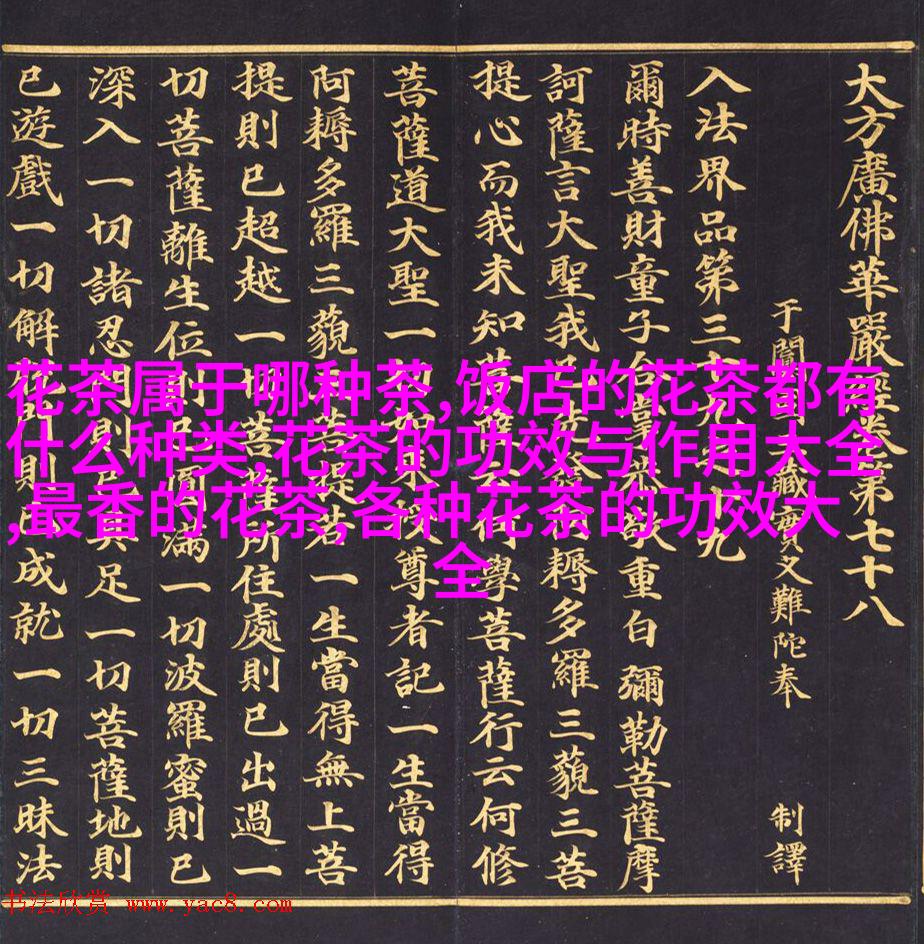 花茶属于哪种茶,饭店的花茶都有
什么种类,花茶的功效与作用大全
,最香的花茶,各种花茶的功效大
全
大方廣佛華嚴經卷第七十八
于闐國三藏實叉難陀奉 制譯
入法界品第三十九之十九
爾時善財童子合掌恭敬重白彌勒菩薩摩
訶薩言大聖我已先發阿耨多羅三藐三菩
提心而我未知菩薩云何學菩薩行云何修
菩薩道大聖一切如來授尊者記一生當得
阿耨多羅三藐三菩提若一生當得無上菩
提則已超越一切菩薩所住處則已出過一
切菩薩離生位則已圓滿一切波羅蜜則已
深入一切諸忍門則已具足一切菩薩地則
已遊戲一切解脫門則已成就一切三昧法
书法欣赏 www.yac8.com